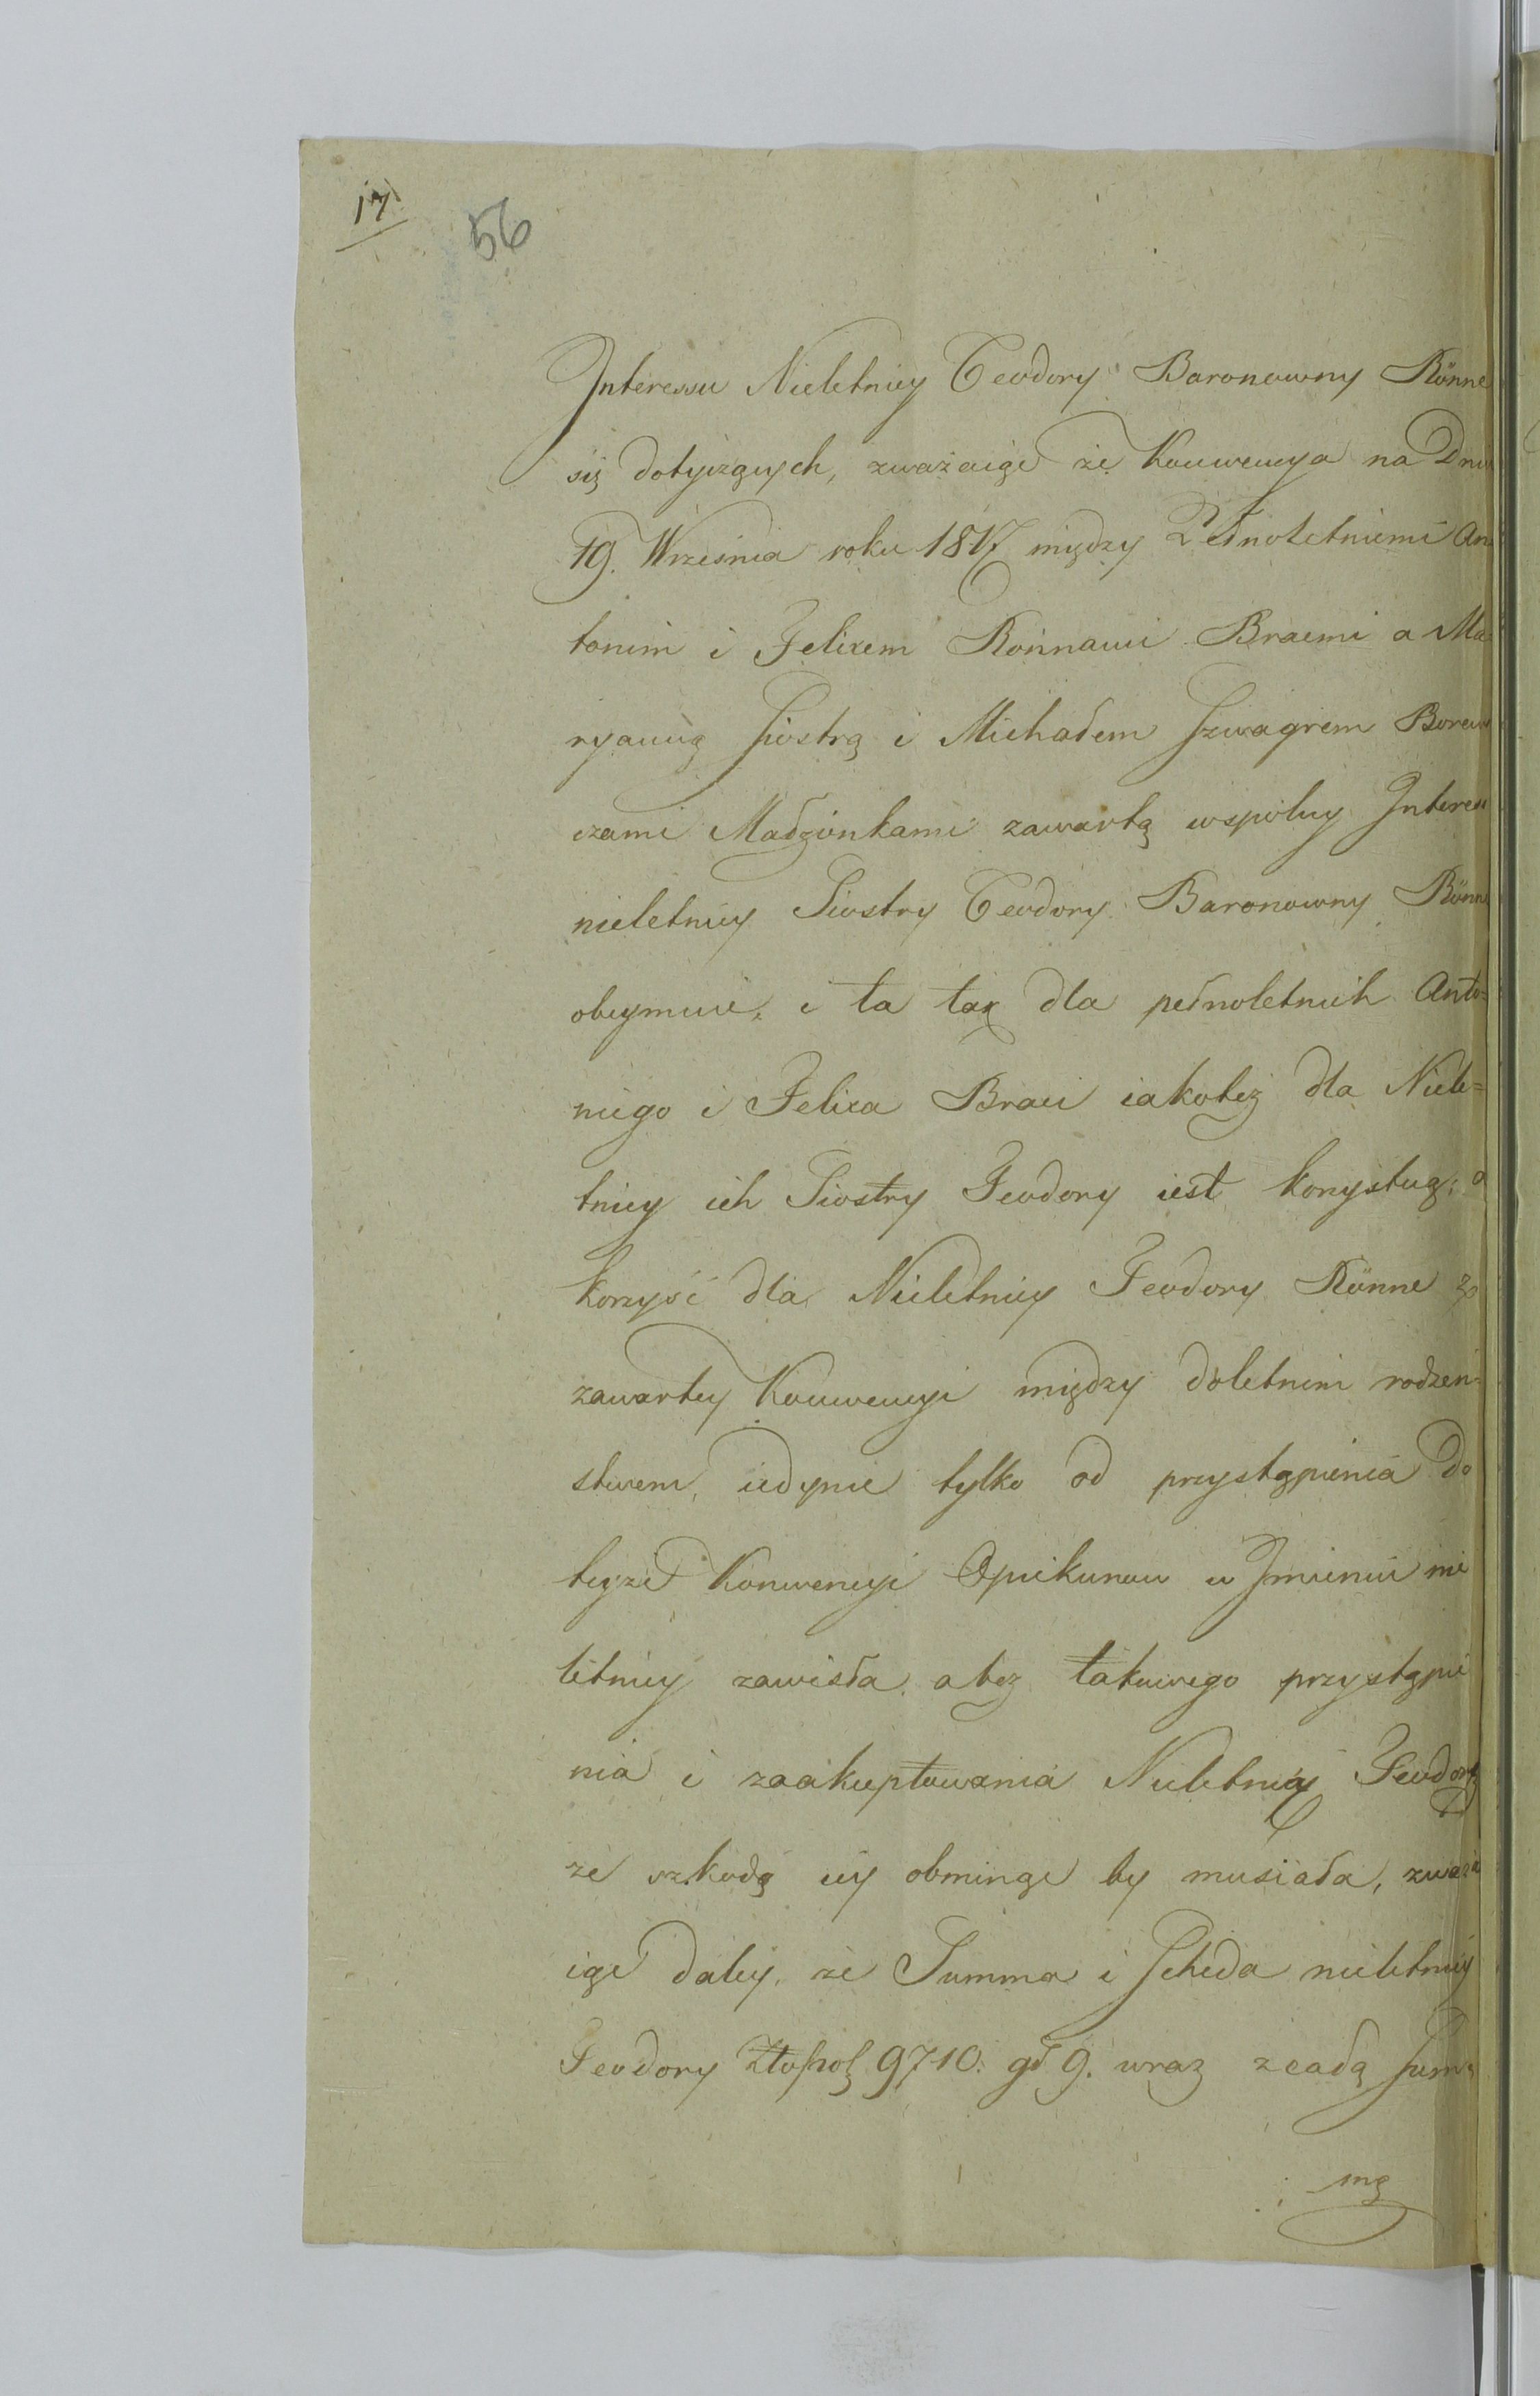 17.
56
Interessu Nieletniey Teodory Baronowny Rönne
się dotyczących, zważaiąc że Konwencya na Dniu
19. Września roku 1817 między Pełnoletniemi An
tonim i Felixem Rönnami Braćmi a Ma
ryanną Siostrą i Michałem Szwagrem Borew
czami Małżonkami zawartą wspolny Interess
nieletniey Siostry Teodory Baronowny Rönne
obeymuie, i ta tak dla pełnoletnich Anto=
niego i Felixa Braci iakoteż dla Niele=
tniey ich Siostry Teodory iest korzystną; a
korzyść dla Nieletniey Teodory Rönne z
zawartey Konwencyi między doletnim rodzeń=
stwem, iedynie tylko od przystąpienia do
teyże Konwencyi Opiekunow w Imieniu nie
letniey zawisła, a bez takowego przystąpie
nia i zaakceptowania Nieletnią Teodorę
ze szkodą iey ominąć by musiała, zważa
iąc daley, że Summa i Scheda nieletniey
Teodory Złopol 9710. gł 9. wraz z całą Sum
mą